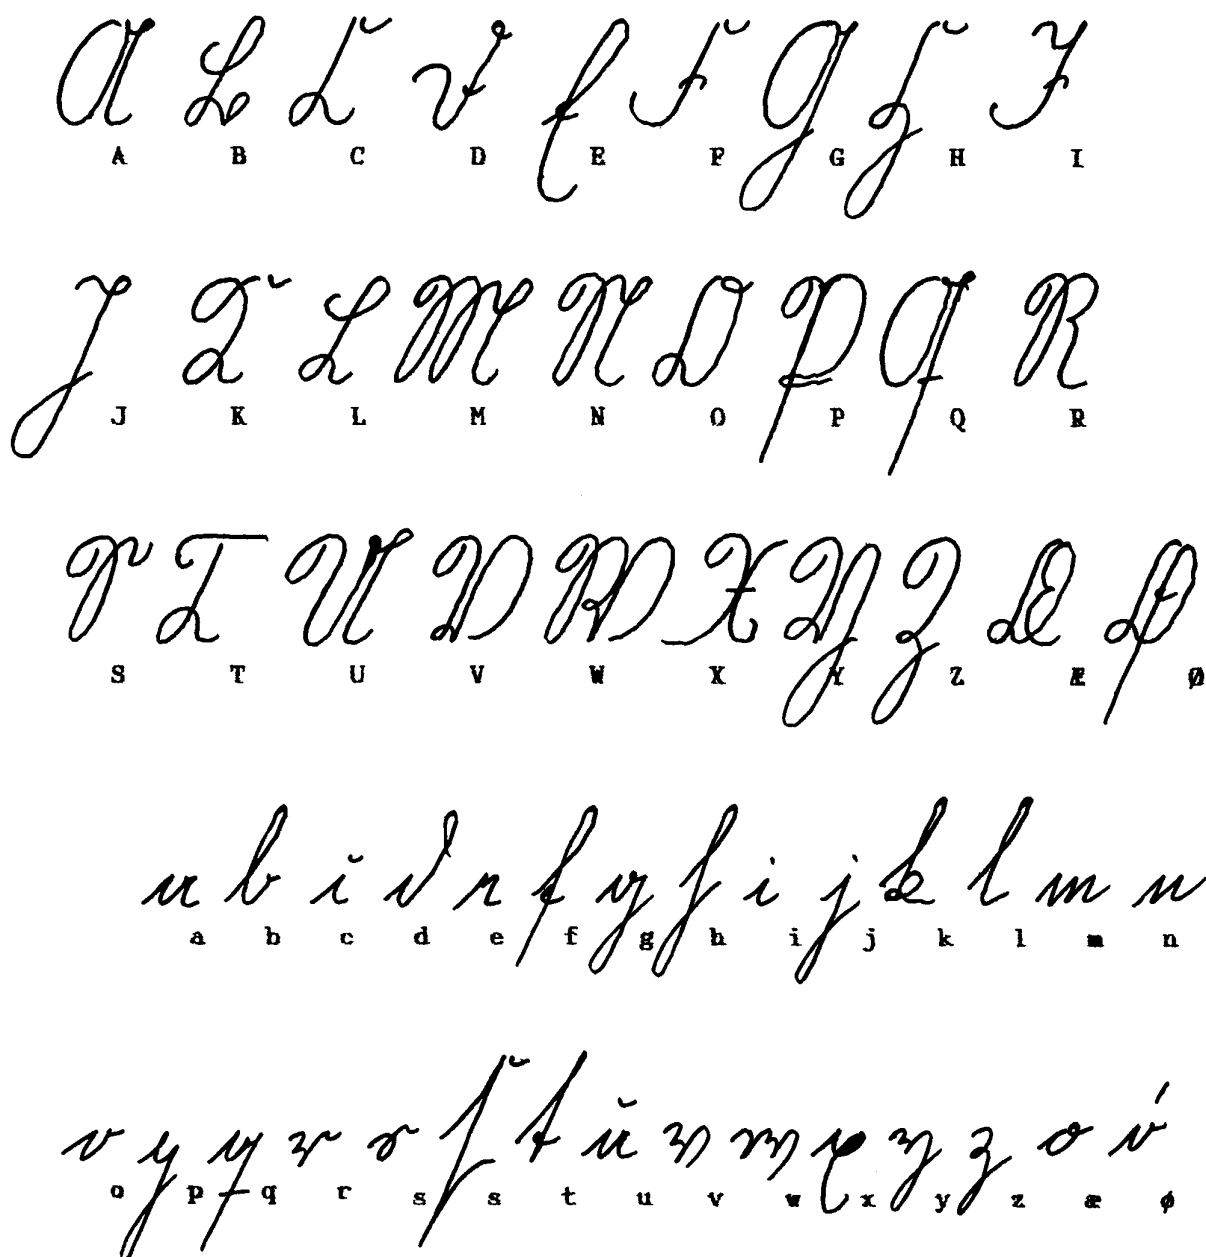 A B C D E F G H I
J K L M N O P Q R
S T U V W X Y Z Æ Ø
a b c d e f g h i j k l m n
o p q r s s t u v w x y z æ ø